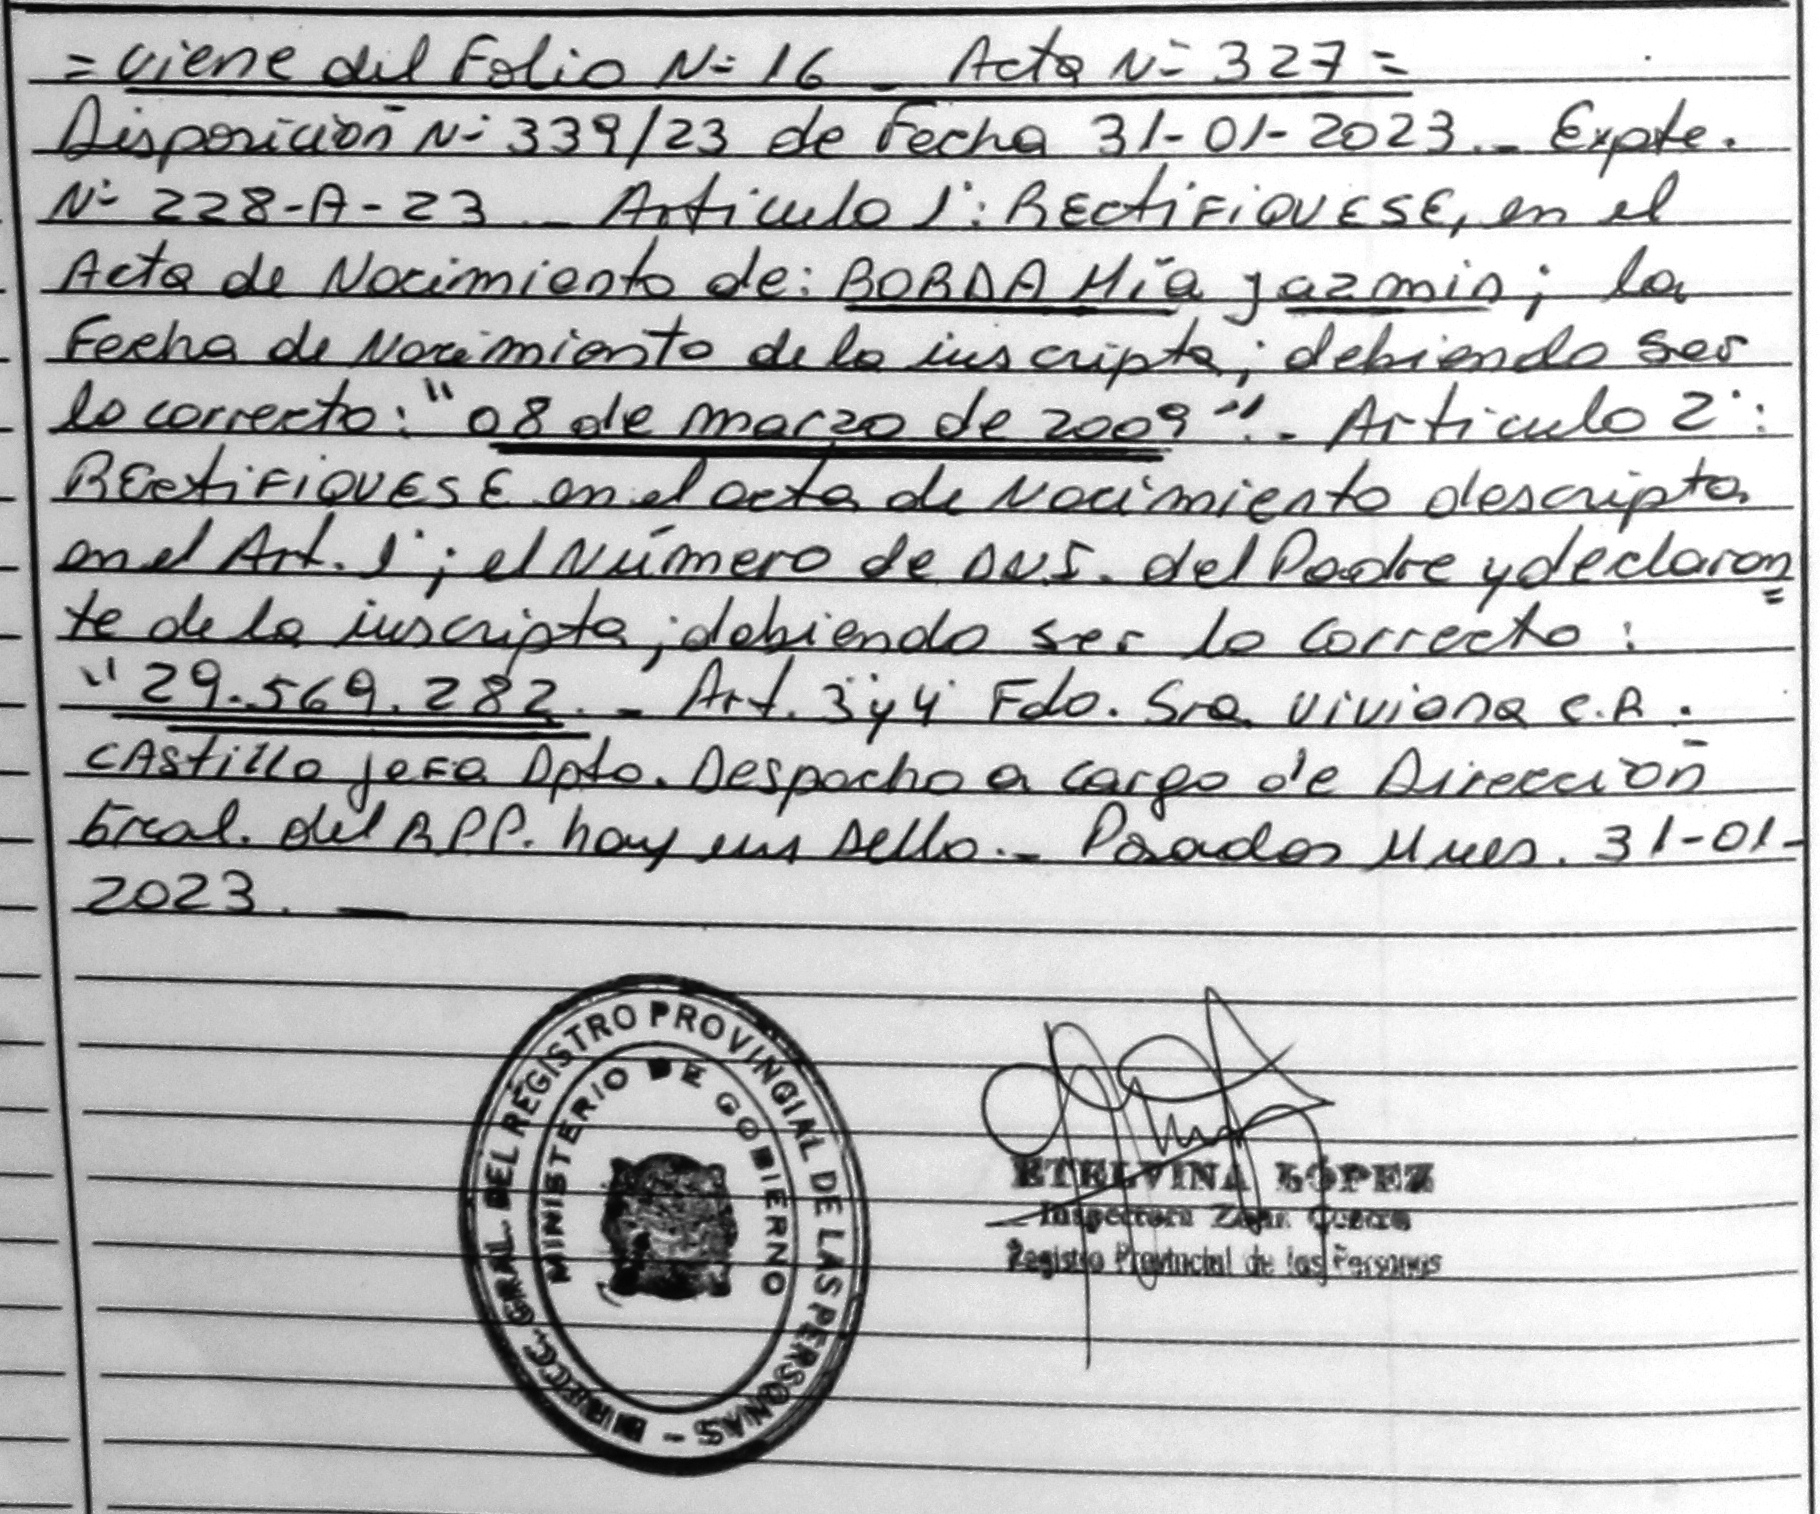 = Viene del Folio Nº 16 _ Acta Nº 327 =
Disposición Nº 339/23 de Fecha 31-01-2023._ Expte.
Nº 228-A-23 _ Articulo 1º: RECtiFiQUESE, en el
Acta de Nacimiento de: BORDA Mía Jazmin; la
Fecha de Nacimiento de la inscripta; debiendo ser
lo correcto: "08 de marzo de 2009"._ Articulo 2º:
RECtiFiQUESE en el acta de Nacimiento descripta
en el Art. 1º; el Número de DNI. del Padre y declaran
te de la inscripta; debiendo ser lo correcto:
"29.569.282._ Art. 3º y 4º Fdo. Sra. Viviana C.R.
CAstillo jeFa Dpto. Despacho a cargo de Dirección
Gral. del RPP. hay un sello._ Posadas Mnes. 31-01-
2023. _
DIRECC. GRAL. DEL REGISTRO PROVINCIAL DE LAS PERSONAS -
MINISTERIO DE GOBIERNO
ETELVINA LOPEZ
Inspectora Zona Centro
Registro Provincial de las Personas